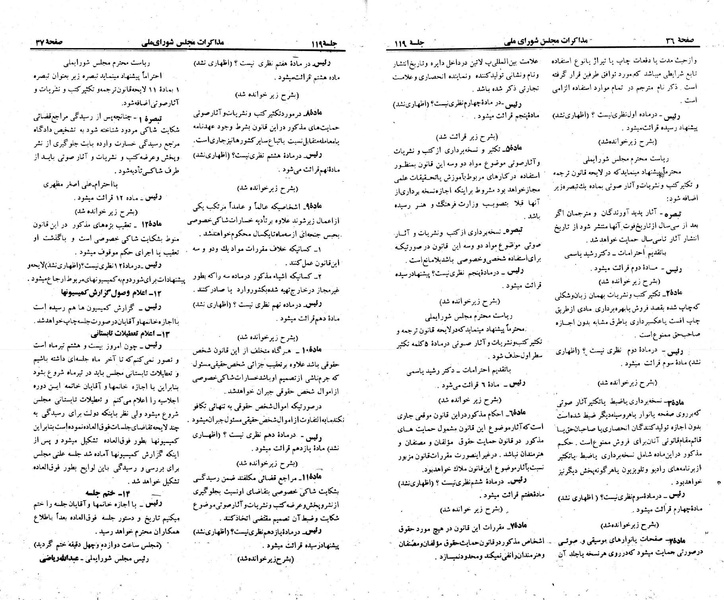 صفحهٔ ۳۶ مذاکرات مجلس شورای ملی جلسهٔ ۱۱۹
واجدیت مدت یا دفعات چاپ یا تیراژ یا نوع استفاده
تابع شرایطی میباشد که مورد توافق طرفین قرار گرفته
است. ذکر نام مترجم در تمام موارد استفاده الزامی
است.
رئیس ـ در ماده اول نظری نیست؟ (اظهاری نشد)
پیشنهاد رسیده قرائت میشود.
(بشرح زیر خوانده شد)
ریاست محترم مجلس شورایملی
محترماً پیشنهاد مینماید که در لایحه قانون ترجمه
و تکثیر کتب و نشریات و آثار صوتی بماده یک تبصره زیر
اضافه شود:
تبصره ـ آثار پدید آورندگان و مترجمان اگر
بعد از سی سال از تاریخ فوت آنها منتشر شود از تاریخ
انتشار آثار تا سی سال حمایت میشود.
با تقدیم احترامات ـ دکتر رشید یاسمی
رئیس ـ ماده دوم قرائت میشود.
(بشرح زیر خوانده شد)
مادهٔ۲ـ تکثیر کتب و نشریات بهمان زبان و شکلی
که چاپ شده بقصد فروش یا بهره‌برداری مادی از طریق
چاپ افست یا عکسبرداری یا طرق مشابه بدون اجازه
صاحب حق ممنوع است.
رئیس ـ در ماده دوم نظری نیست؟ (اظهاری نشد)
مادهٔ سوم قرائت میشود.
(بشرح زیر خوانده شد)
مادهٔ۳ـ نسخه‌برداری یا ضبط یا تکثیر آثار صوتی
که بر روی صفحه یا نوار یا هر وسیله دیگر ضبط شده است
بدون اجازه تولیدکنندگان انحصاری یا صاحبان حق یا
قائم مقام قانونی آنان برای فروش ممنوع است.
حکم مذکور در این ماده شامل نسخه‌برداری یا ضبط یا تکثیر
از برنامه‌های رادیو و تلویزیون یا هر گونه پخش دیگر نیز
خواهد بود.
رئیس ـ در ماده سوم نظری نیست؟ (اظهاری نشد)
مادهٔ چهارم قرائت میشود.
(بشرح زیر خوانده شد)
مادهٔ۴ـ صفحات یا نوارهای موسیقی و صوتی
در صورتی حمایت میشود که در روی هر نسخه یا جلد آن
علامت بین‌المللی پ لاتین در داخل دایره و تاریخ انتشار
و نام و نشانی تولیدکننده و نماینده انحصاری و علامت
تجارتی ذکر شده باشد.
رئیس ـ در مادهٔ چهارم نظری نیست؟ (اظهاری نشد)
مادهٔ پنجم قرائت میشود.
(بشرح زیر قرائت شد)
مادهٔ۵ـ تکثیر و نسخه‌برداری از کتب و نشریات
و آثار صوتی موضوع مواد دو و سه این قانون بمنظور
استفاده در کارهای مربوط بآموزش یا تحقیقات علمی
مجاز خواهد بود مشروط بر اینکه اجازه نسخه‌برداری از
آنها قبلا بتصویب وزارت فرهنگ و هنر رسیده
باشد.
تبصره ـ نسخه‌برداری از کتب و نشریات و آثار
صوتی موضوع مواد دو و سه این قانون در صورتیکه
برای استفاده شخصی و خصوصی باشد بلامانع است.
رئیس ـ در مادهٔ پنجم نظری نیست؟ پیشنهاد رسیده
قرائت میشود.
(بشرح زیر خوانده شد)
ریاست محترم مجلس شورایملی
محترماً پیشنهاد مینماید که در لایحه قانون ترجمه و
تکثیر کتب و نشریات و آثار صوتی در مادهٔ ۵ کلمه تکثیر
سطر اول حذف شود.
با تقدیم احترامات ـ دکتر رشید یاسمی
رئیس ـ ماده ۶ قرائت میشود.
(بشرح زیر خوانده شد)
مادهٔ۶ـ احکام مذکور در این قانون موقعی جاری
است که آثار موضوع این قانون مشمول حمایت های
مذکور در قانون حمایت حقوق مؤلفان و مصنفان و
هنرمندان نباشد. در غیر اینصورت مقررات قانون مزبور
نسبت بآثار موضوع این قانون ملاک خواهد بود.
رئیس ـ در مادهٔ ششم نظری نیست؟ (اظهاری نشد)
مادهٔ هفتم قرائت میشود.
(بشرح زیر خوانده شد)
مادهٔ۷ـ مقررات این قانون در هیچ مورد حقوق
اشخاص مذکور در قانون حمایت حقوق مؤلفان و مصنفان
و هنرمندان را نفی نمیکند و محدود نمیسازد.
جلسهٔ ۱۱۹ مذاکرات مجلس شورای ملی صفحهٔ ۳۷
رئیس ـ در مادهٔ هفتم نظری نیست؟ (اظهاری نشد)
ماده هشتم قرائت میشود.
(بشرح زیر خوانده شد)
مادهٔ۸ـ در مورد تکثیر کتب و نشریات و آثار صوتی
حمایت‌های مذکور در این قانون بشرط وجود عهدنامه
یا معامله متقابل نسبت باتباع سایر کشورها نیز جاری است.
رئیس ـ در مادهٔ هشتم نظری نیست؟ (اظهاری نشد)
ماده نهم قرائت میشود.
(بشرح زیر خوانده شد)
مادهٔ۹ـ اشخاصیکه عالماً و عامداً مرتکب یکی
از اعمال زیر شوند علاوه بر تأدیه خسارات شاکی خصوصی
بحبس جنحه‌ای از سه ماه تا یکسال محکوم خواهند شد.
۱ـ کسانیکه خلاف مقررات مواد یک و دو و سه
این قانون عمل کنند.
۲ـ کسانیکه اشیاء مذکور در ماده سه را که بطور
غیرمجاز در خارج تهیه شده بکشور وارد یا صادر کنند.
رئیس ـ در ماده نهم نظری نیست؟ (اظهاری نشد)
مادهٔ دهم قرائت میشود.
(بشرح زیر خوانده شد)
مادهٔ۱۰ـ هر گاه متخلف از این قانون شخص
حقوقی باشد علاوه بر تعقیب جزائی شخص حقیقی مسئول
که جرم ناشی از تصمیم او باشد خسارات شاکی خصوصی
از اموال شخص حقوقی جبران خواهد شد.
در صورتیکه اموال شخص حقوقی به تنهائی تکافو
نکند مابه‌التفاوت از اموال شخص حقیقی مسئول جبران میشود.
رئیس ـ در مادهٔ دهم نظری نیست؟ (اظهاری نشد)
مادهٔ یازدهم قرائت میشود.
(بشرح زیر خوانده شد)
مادهٔ۱۱ـ مراجع قضائی مکلفند ضمن رسیدگی
بشکایت شاکی خصوصی بتقاضای او نسبت بجلوگیری
از نشر و پخش و عرضه کتب و نشریات و آثار صوتی موضوع
شکایت و ضبط آن تصمیم مقتضی اتخاذ کنند.
رئیس ـ در مادهٔ یازدهم نظری نیست؟ (اظهاری نشد)
پیشنهاد رسیده قرائت میشود.
(بشرح زیر خوانده شد)
ریاست محترم مجلس شورایملی
احتراماً پیشنهاد مینماید تبصره زیر بعنوان تبصره
۱ مادهٔ ۱۱ لایحه قانون ترجمه و تکثیر کتب و نشریات و
آثار صوتی اضافه شود.
تبصره ۱ـ چنانچه پس از رسیدگی مراجع قضائی
شکایت شاکی مردود شناخته شود به تشخیص دادگاه
مراجع رسیدگی خسارت وارده بابت جلوگیری از نشر
و پخش و عرضه کتب و نشریات و آثار صوتی باید از
طرف شاکی تأدیه شود.
با احترام ـ علی اصغر مظهری
رئیس ـ ماده ۱۲ قرائت میشود.
(بشرح زیر خوانده شد)
مادهٔ۱۲ـ تعقیب بزه‌های مذکور در این قانون
منوط بشکایت شاکی خصوصی است و با گذشت او
تعقیب یا اجرای حکم موقوف میشود.
رئیس ـ در مادهٔ ۱۲ نظری نیست؟ (اظهاری نشد) لایحه و
پیشنهادات برای شور دوم به کمیسیونهای مربوط ارجاع میشود.
۱۲ـ اعلام وصول گزارش کمیسیونها
رئیس ـ گزارش کمیسیون ها هم رسیده است
با اجازه خانمها و آقایان در صورت جلسه چاپ میشود.
۱۳ـ اعلام تعطیلات تابستانی
رئیس ـ چون امروز بیست و هشتم تیرماه است
و تصور نمی‌کنم که تا آخر ماه جلسه‌ای داشته باشیم
و تعطیلات تابستانی مجلس باید در تیرماه شروع شود
بنابراین با اجازه خانمها و آقایان خاتمه این دوره
اجلاسیه را اعلام می‌کنم و تعطیلات تابستانی
شروع میشود ولی نظر باینکه دولت برای رسیدگی به
چند لایحه تقاضای جلسات فوق‌العاده نموده است بنابراین
کمیسیونها بطور فوق‌العاده تشکیل میشود و پس از
اینکه گزارش کمیسیونها آماده شد جلسه علنی مجلس
برای بررسی و رسیدگی باین لوایح بطور فوق‌العاده
تشکیل خواهد شد.
۱۴ـ ختم جلسه
رئیس ـ با اجازه خانمها و آقایان جلسه را ختم
میکنیم تاریخ و دستور جلسه فوق‌العاده بعداً باطلاع
همکاران محترم خواهد رسید.
(مجلس ساعت دوازده و چهل دقیقه ختم گردید)
رئیس مجلس شورایملی ـ عبدالله ریاضی